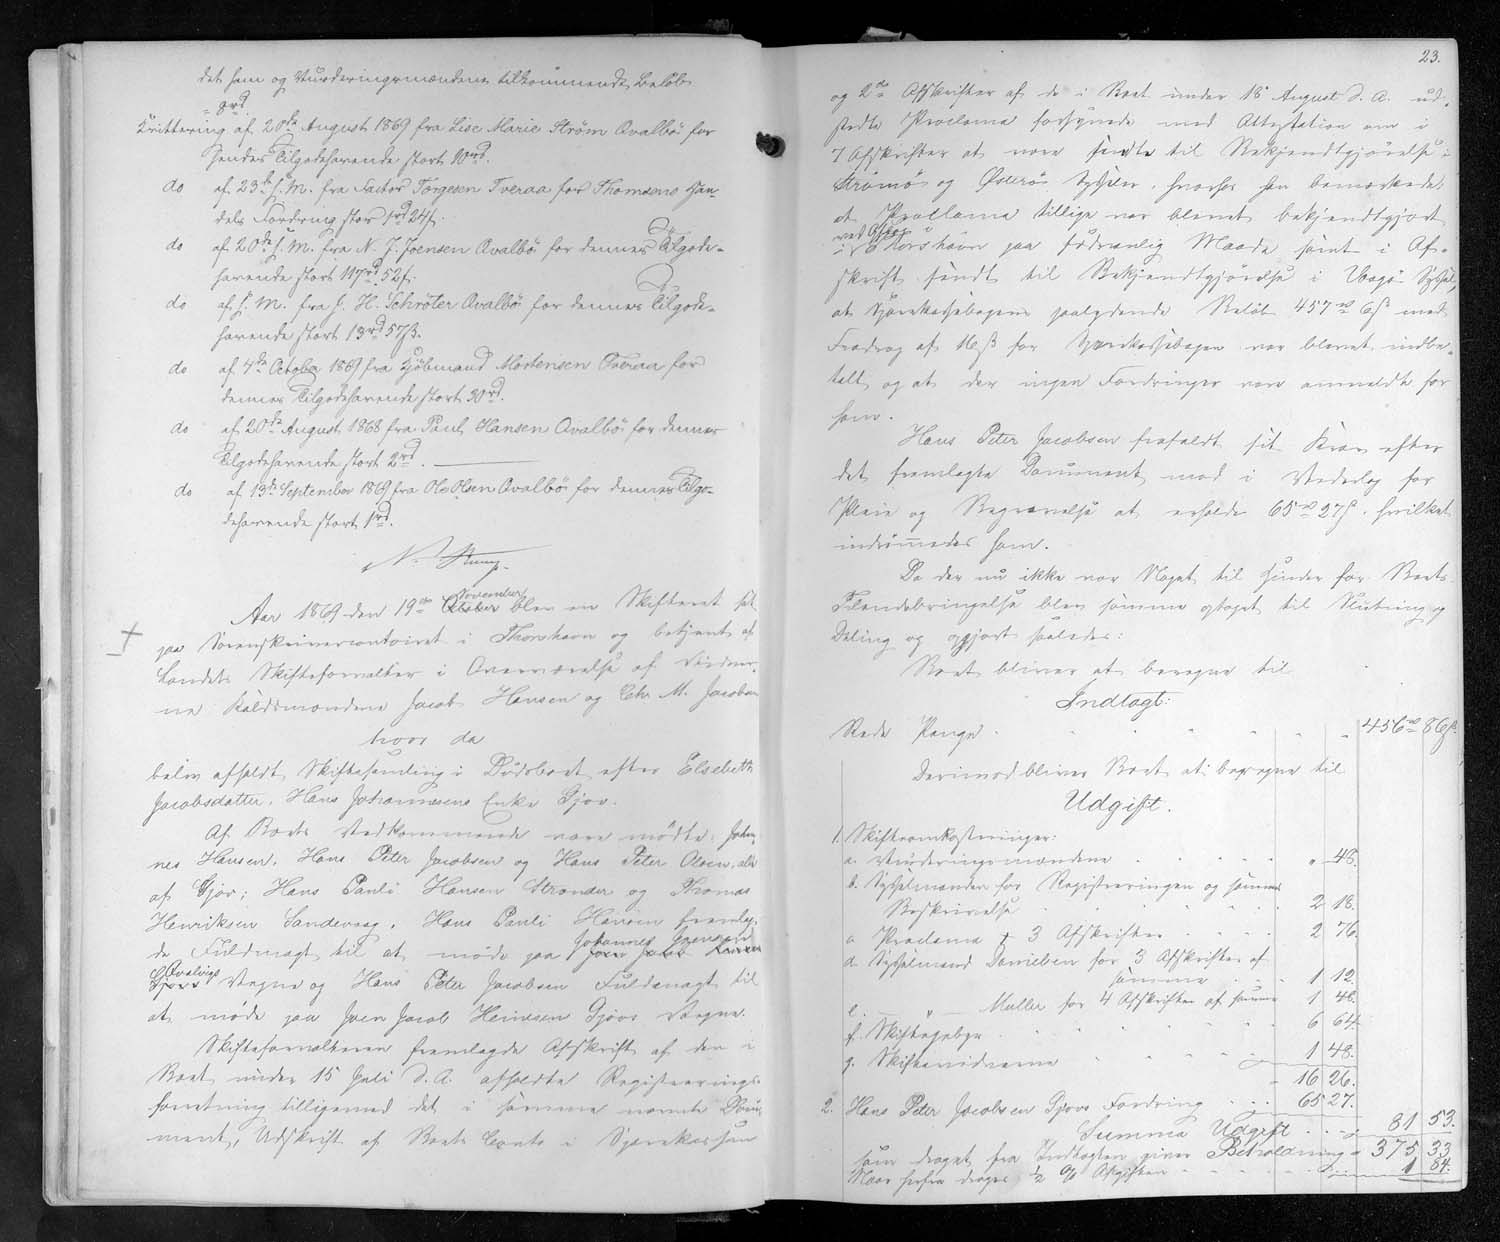 det ham og Vurderingsmændene tilkommende Beløb
= 8rd.
Kvittering af 20de August 1869 fra Lise Marie Strøm Qvalbø for
hendes Tilgodehavende stort 10rd.
do af 23de f. M. fra Factor Torgesen Tveraa for Thomsens Han-
dels Fordring stor 1rd 24ß.
do af 20de f. M. fra N. J. Joensen Qvalbø for dennes Tilgode-
havende stort 117rd 52ß.
do af f. M. fra J. H. Schrøter Qvalbø for dennes Tilgode-
havende stort 13rd 57ß.
do af 4de October 1869 fra Kjøbmand Mortensen Tveraa for
dennes Tilgodehavende stort 30rd.
do af 20de August 1868 fra Paul Hansen Qvalbø for dennes
Tilgodehavende stort 2rd.
do af 13de September 1869 fra Ole Olsen Qvalbø for dennes Tilgo-
dehavende stort 1rd.
Aar 1869 den 19de November blev en Skifteret sat
paa Sorenskrivercontoiret i Thorshavn og betjent af
Landets Skifteforvalter i Overværelse af Vidner-
ne Kaldsmændene Jacob Hansen og Chr. M. Jacobsen
hvor da
blev afholdt Skiftesamling i Dødsboet efter Elsebeth
Jacobsdatter, Hans Johannesens Enke Gjov.
Af Boets Vedkommende vare mødte: Johan-
nes Hansen, Hans Peter Jacobsen og Hans Peter Olsen, alle
af Gjov; Hans Pauli Hansen Strender og Thomas
Henriksen Sandevaag. Hans Pauli Hansen fremlag-
de Fuldmagt til at møde paa Johannes Joensen
Qvalvigs Vegne og Hans Peter Jacobsen Fuldmagt til
at møde paa Joen Jacob Hansen Gjovs Vegne.
Skifteforvalteren fremlagde Afskrift af den i
Boet under 15 Juli d. A. afholdte Registrerings-
forretning tilligemed det i samme nævnte Docu-
ment, Udskrift af Boets Conto i Sparekassen
23.
og 2de Afskrifter af de i Boet under 18 August d. A. ud-
stedte Proclama forsynede med Attestation om i
7 Afskrifter at være sendte til Bekjendtgjørelse i
Strømø og Østerø Sysler, hvorhos han bemærkede
at Proclama tillige var blevet bekjendtgjort
ved Opslag
i Thorshavn paa sædvanlig Maade samt i Af-
skrift sendt til Bekjendtgjørelse i Vaagø Syssel,
at Sparekassebogens paalydende Beløb 457rd 6ß med
Fradrag af 16ß for Sparekassebogen var blevet indbe-
talt og at der ingen Fordringer vare anmeldte for
ham.
Hans Peter Jacobsen frafaldt sit Krav efter
det fremlagte Document mod i Vederlag for
Pleie og Begravelse at erholde 65rd 27ß, hvilket
indrømmedes ham.
Da der nu ikke var Noget til Hinder for Boets
Tilendebringelse blev samme optaget til Slutning og
Deling og opgjort saaledes:
Boet bliver at beregne til
Indtægt:
Rede Penge 456rd 86ß.
Derimod bliver Boet at beregne til
Udgift.
1. Skifteomkostninger:
a. Vurderingsmændene " 48.
b. Sysselmanden for Registreringen og sammes
Beskrivelse 2 18.
c. Proclama + 3 Afskrifter 2 76.
d. Sysselmand Danielsen for 3 Afskrifter af
samme 1 12.
e. — " — Muller for 4 Afskrifter af samme 1 48.
f. Skiftegebyr 6 64.
g. Skiftevidnerne 1 48.
= 16 26.
2. Hans Peter Jacobsen Gjovs Fordring 65 27.
Summa Udgift 81 53.
som draget fra Indtægten giver Beholdning = 375 33
Naar herfra drages ½ % Afgiften 1 84.